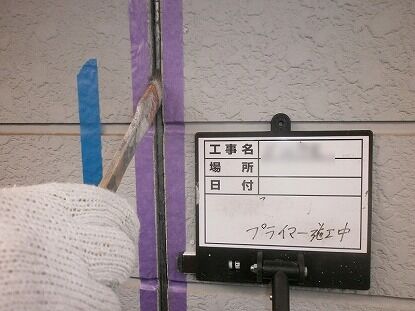 工事名
場所
日付
プライマー施工中